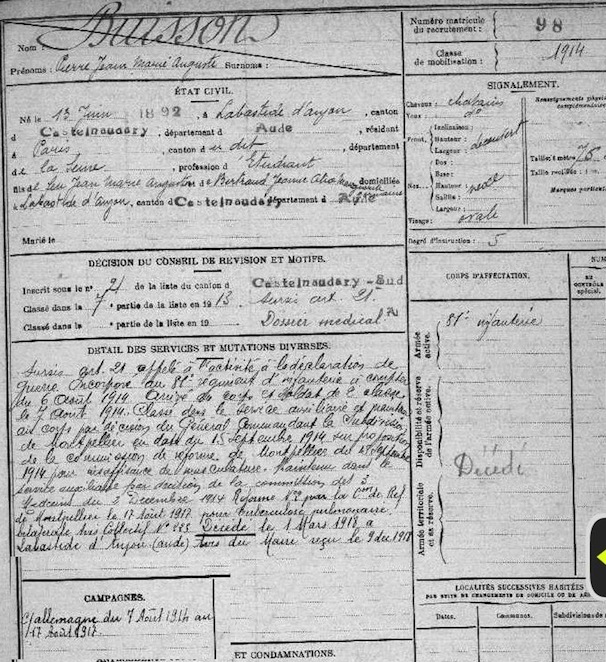 Nom : Buisson
Prénoms : Pierre Jean Marie Auguste Surnoms :
Numéro matricule du recrutement : 98
Classe de mobilisation : 1914
ÉTAT CIVIL.
Né le 13 Juin 1892, à Labastide d'anjou, canton
d Castelnaudary, département d Aude, résidant
à Paris, canton d dit, département
de la Seine, profession d'Etudiant
fils de feu Jean Marie Augustin et de Bertrand Jeanne domiciliés
à Labastide d'Anjou, canton d Castelnaudary département d Aude
Marié le
SIGNALEMENT.
Cheveux : chatains
Yeux : do
Front Inclinaison :
Hauteur : découvert
Largeur :
Nez Dos :
Base :
Hauteur :
Saillie :
Largeur :
Visage : ovale
Renseignements physio
complémentaires
Taille : 1 mètre
Taille rectifiée : 1 m.
Marques particul
Degré d'instruction : 5
DÉCISION DU CONSEIL DE RÉVISION ET MOTIFS.
Inscrit sous le n° 21 de la liste du canton d Castelnaudary - Sud
Classé dans la 7e partie de la liste en 1913. Sursis art. 21.
Classé dans la partie de la liste en 19 Dossier medical
DÉTAIL DES SERVICES ET MUTATIONS DIVERSES.
Sursis art. 21 appelé à l'activité à la déclaration de
guerre. Incorporé au 81e régiment d'infanterie à compter
du 6 Août 1914. Arrivé au corps et soldat de 2e classe
le 7 Aout 1914. Classé dans le service auxiliaire et maintenu
au corps par décision du Général Commandant la Subdivision
de Montpellier en date du 15 Septembre 1914 sur proposition
de la commission de réforme de Montpellier du Septembre
1914 pour insuffisance de musculature. Maintenu dans le
service auxiliaire par décision de la commission des 3
Médecins du 2 Décembre 1914 Réformé N°2 par la Com de Réf
de Montpellier le 17 Août 1917 pour tuberculose pulmonaire
bilatérale Avis Collectif N° Décédé le 1 Mars 1918 à
Labastide d'Anjou (aude) Avis du Maire reçu le 9 dec 1918
CORPS D'AFFECTATION.
NUM
au contrôle spécial.
Armée active.
81e infanterie
Disponibilité et réserve de l'armée active.
Décédé
Armée territoriale et sa réserve.
CAMPAGNES.
C/allemagne du 7 Août 1914 au
17 Août 1917.
LOCALITÉS SUCCESSIVES HABITÉES
PAR SUITE DE CHANGEMENTS DE DOMICILE OU DE RÉS
Dates. Communes. Subdivisions de
ET CONDAMNATIONS.